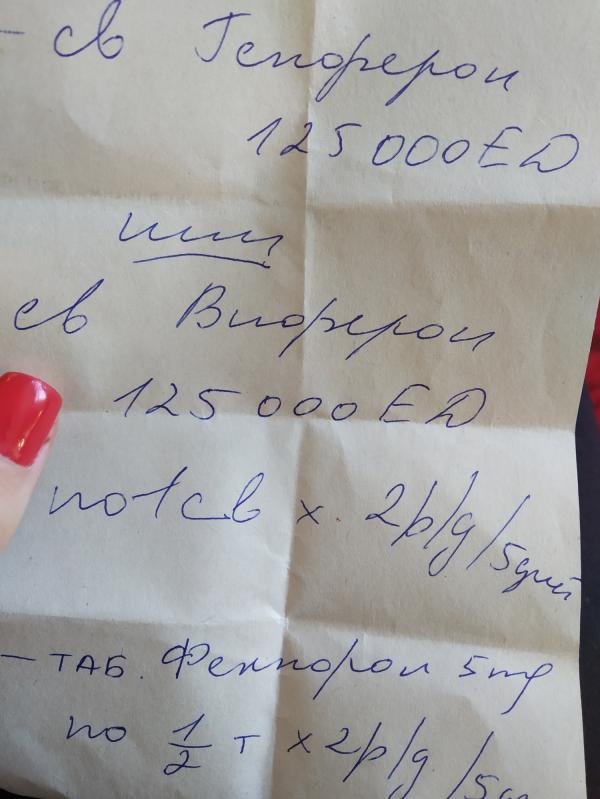 - св Генферон
125000ЕД
или
св Виферон
125 000ЕД
по 1 св х 2р/д/5дней
- ТАБ. 5mg
по 1/2 т х 2р/д/5дн